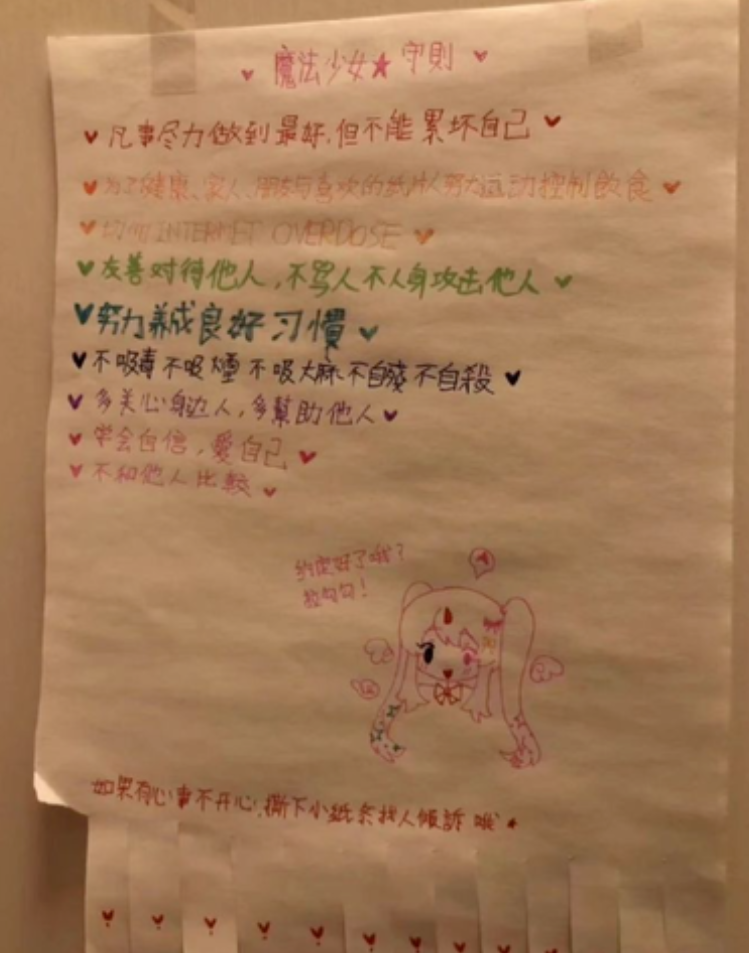 魔法少女★守則
凡事尽力做到最好,但不能累坏自己
为了健康、家人、朋友与喜欢的纸片人努力运动控制飲食
切勿INTERNET OVERDOSE
友善对待他人,不骂人不人身攻击他人
努力养成良好习慣
不吸毒不吸煙不吸大麻不自殘不自殺
多关心身边人,多幫助他人
学会自信,愛自己
不和他人比較
约定好了哦?
拉勾勾!
如果有心事不开心,撕下小纸条找人倾訴哦★